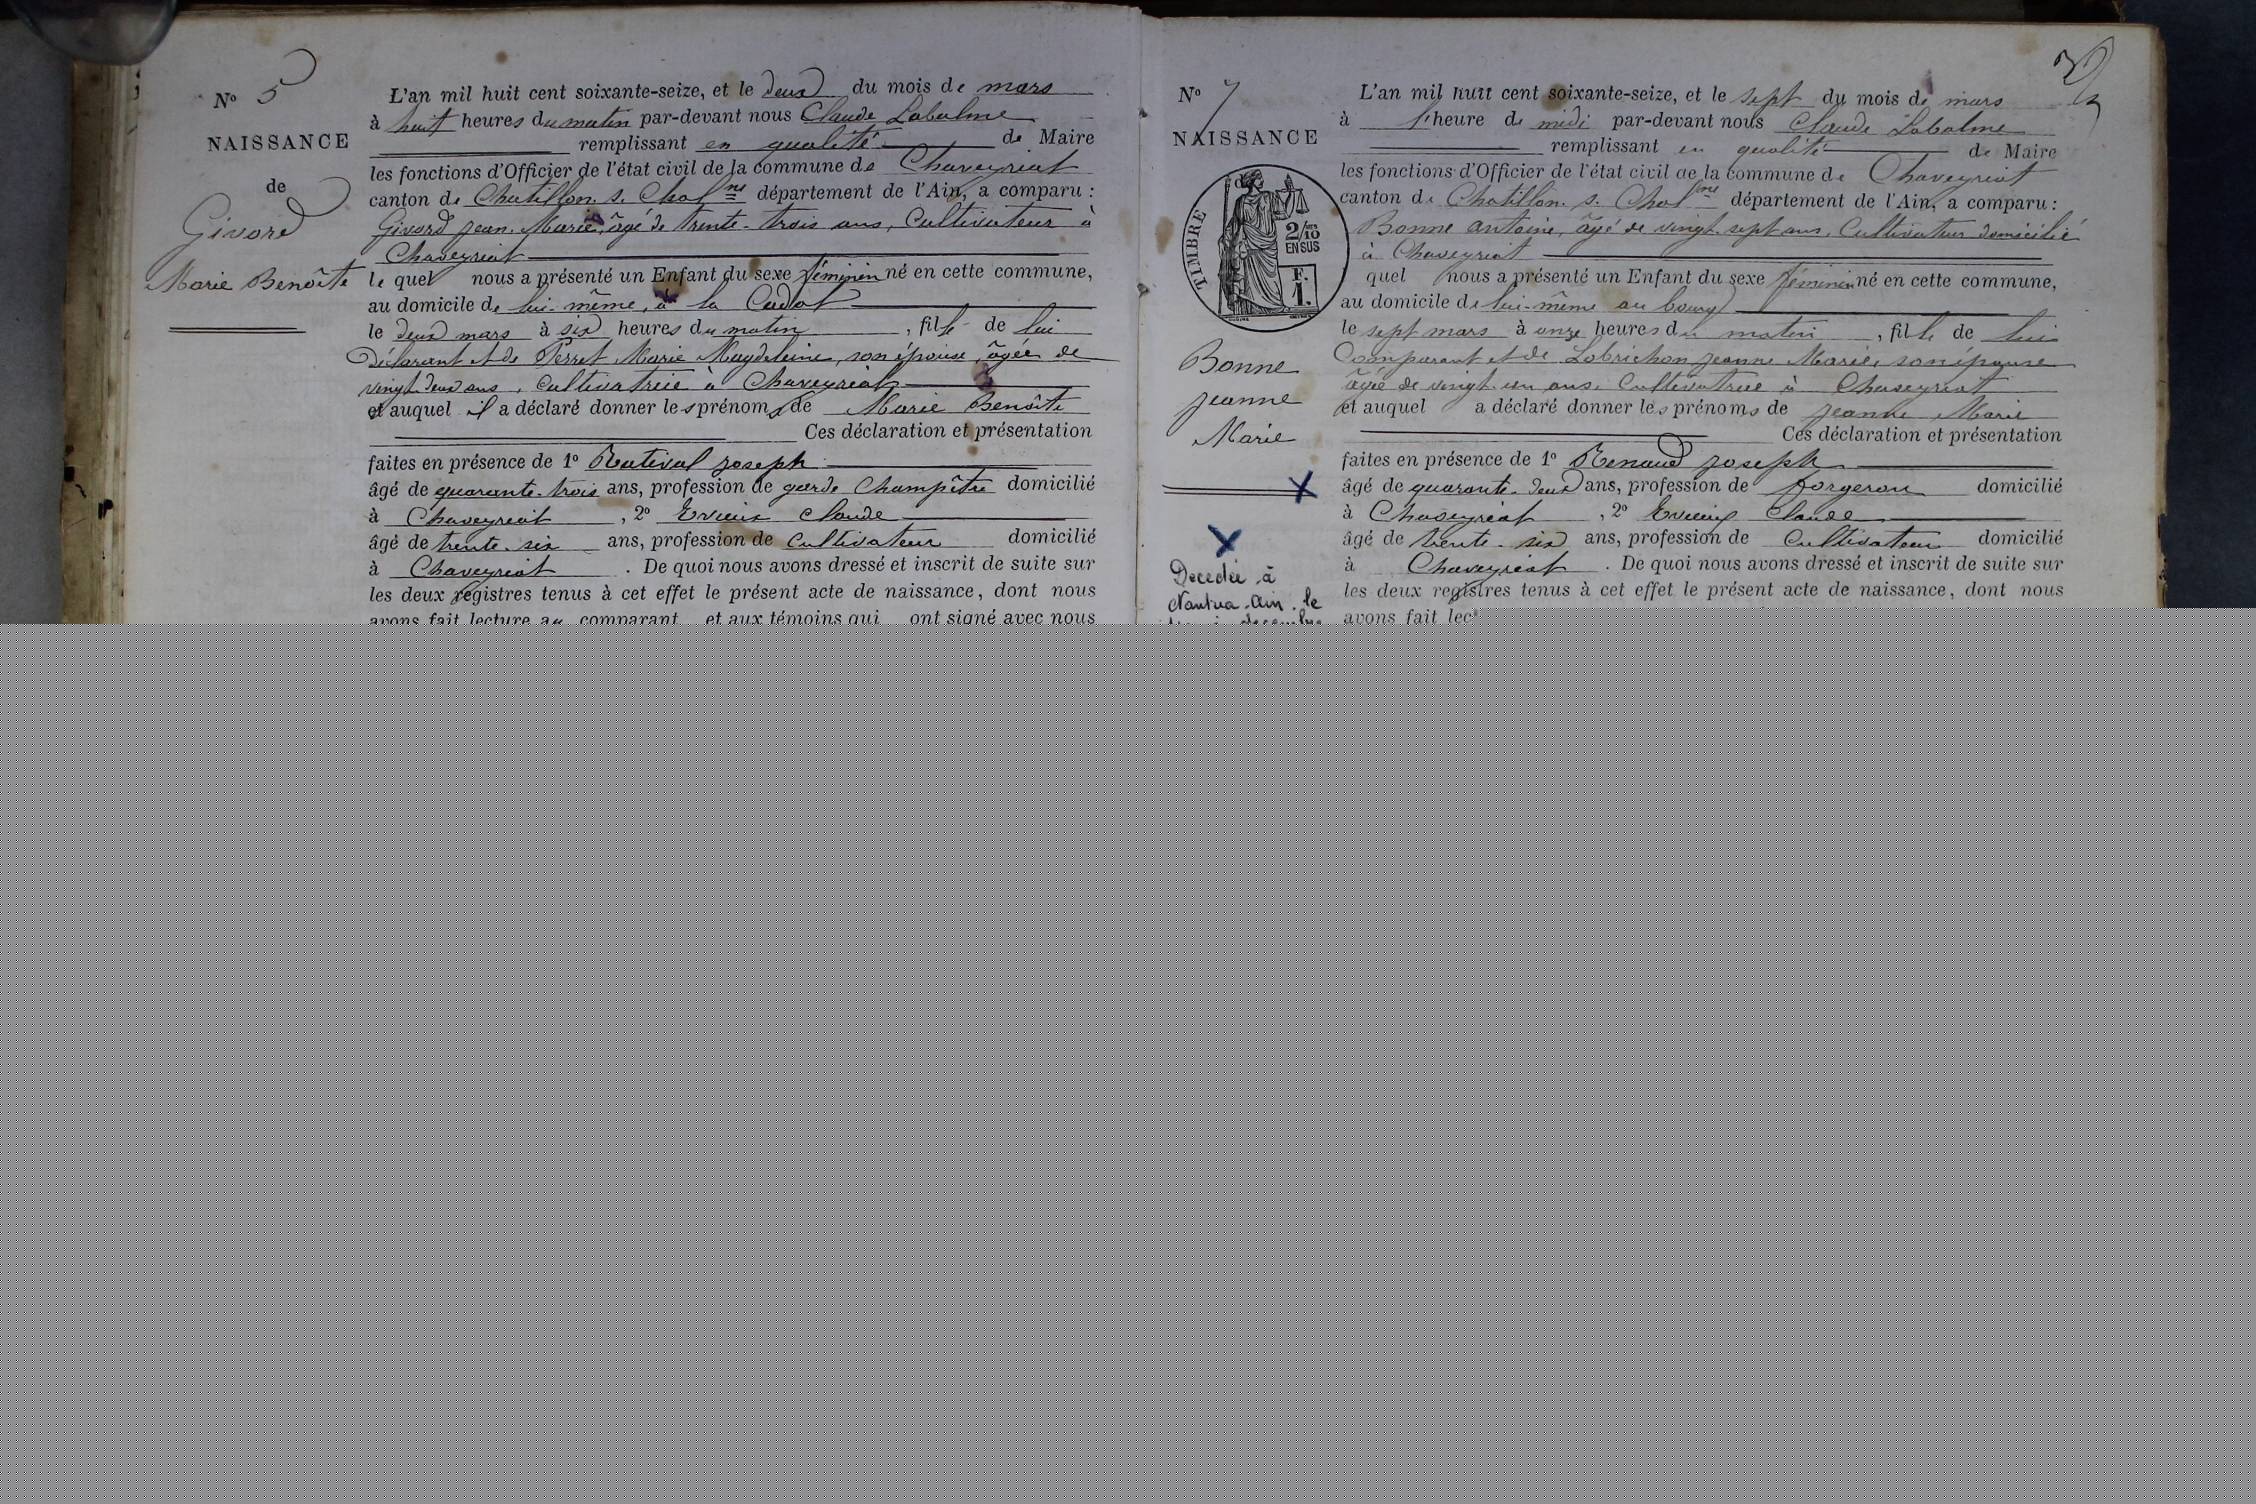 N° 5
NAISSANCE
de
Givord
Marie Benoîte
L'an mil huit cent soixante-seize, et le deux du mois de mars
à huit heures du matin par-devant nous Claude Labalme
remplissant en qualité de Maire
les fonctions d'Officier de l'état civil de la commune de Chaveyriat
canton de Chatillon s. Chalne département de l'Ain, a comparu :
Givord jean-Marie, âgé de trente-trois ans, Cultivateur à
Chaveyriat
le quel nous a présenté un Enfant du sexe féminin né en cette commune,
au domicile de lui-même, à la Cadot
le deux mars à six heures du matin, fille de lui
Déclarant et de Perret Marie Magdeleine, son épouse, âgée de
vingt deux ans, cultivatrice à Chaveyriat
et auquel il a déclaré donner les prénoms de Marie Benoîte
Ces déclaration et présentation
faites en présence de 1° joseph
âgé de quarante-trois ans, profession de garde Champêtre domicilié
à Chaveyriat, 2° Evieux Claude
âgé de trente-six ans, profession de Cultivateur domicilié
à Chaveyriat. De quoi nous avons dressé et inscrit de suite sur
les deux registres tenus à cet effet le présent acte de naissance, dont nous
avons fait lecture au comparant et aux témoins qui ont signé avec nous
N° 7
NAISSANCE
TIMBRE
2/10
EN SUS
F.
1.
Bonne
jeanne
Marie
Decedée à
Nantua-Ain. le
decembre
L'an mil huit cent soixante-seize, et le sept du mois de mars
à l'heure de midi par-devant nous Claude Labalme
remplissant en qualité de Maire
les fonctions d'Officier de l'état civil de la commune de Chaveyriat
canton de Chatillon s. Chalne département de l'Ain, a comparu :
Bonne antoine, âgé de vingt-sept ans, Cultivateur domicilié
à Chaveyriat
quel nous a présenté un Enfant du sexe féminin né en cette commune,
au domicile de lui-même au bourg
le sept mars à onze heures du matin, fille de lui
Comparant et de Lobrichon jeanne Marie, son épouse
âgée de vingt-un ans, Cultivatrice à Chaveyriat
et auquel a déclaré donner les prénoms de jeanne Marie
Ces déclaration et présentation
faites en présence de 1° Renaud joseph
âgé de quarante-deux ans, profession de forgeron domicilié
à Chaveyriat, 2° Evieux Claude
âgé de trente-six ans, profession de Cultivateur domicilié
à Chaveyriat. De quoi nous avons dressé et inscrit de suite sur
les deux registres tenus à cet effet le présent acte de naissance, dont nous
avons fait lec